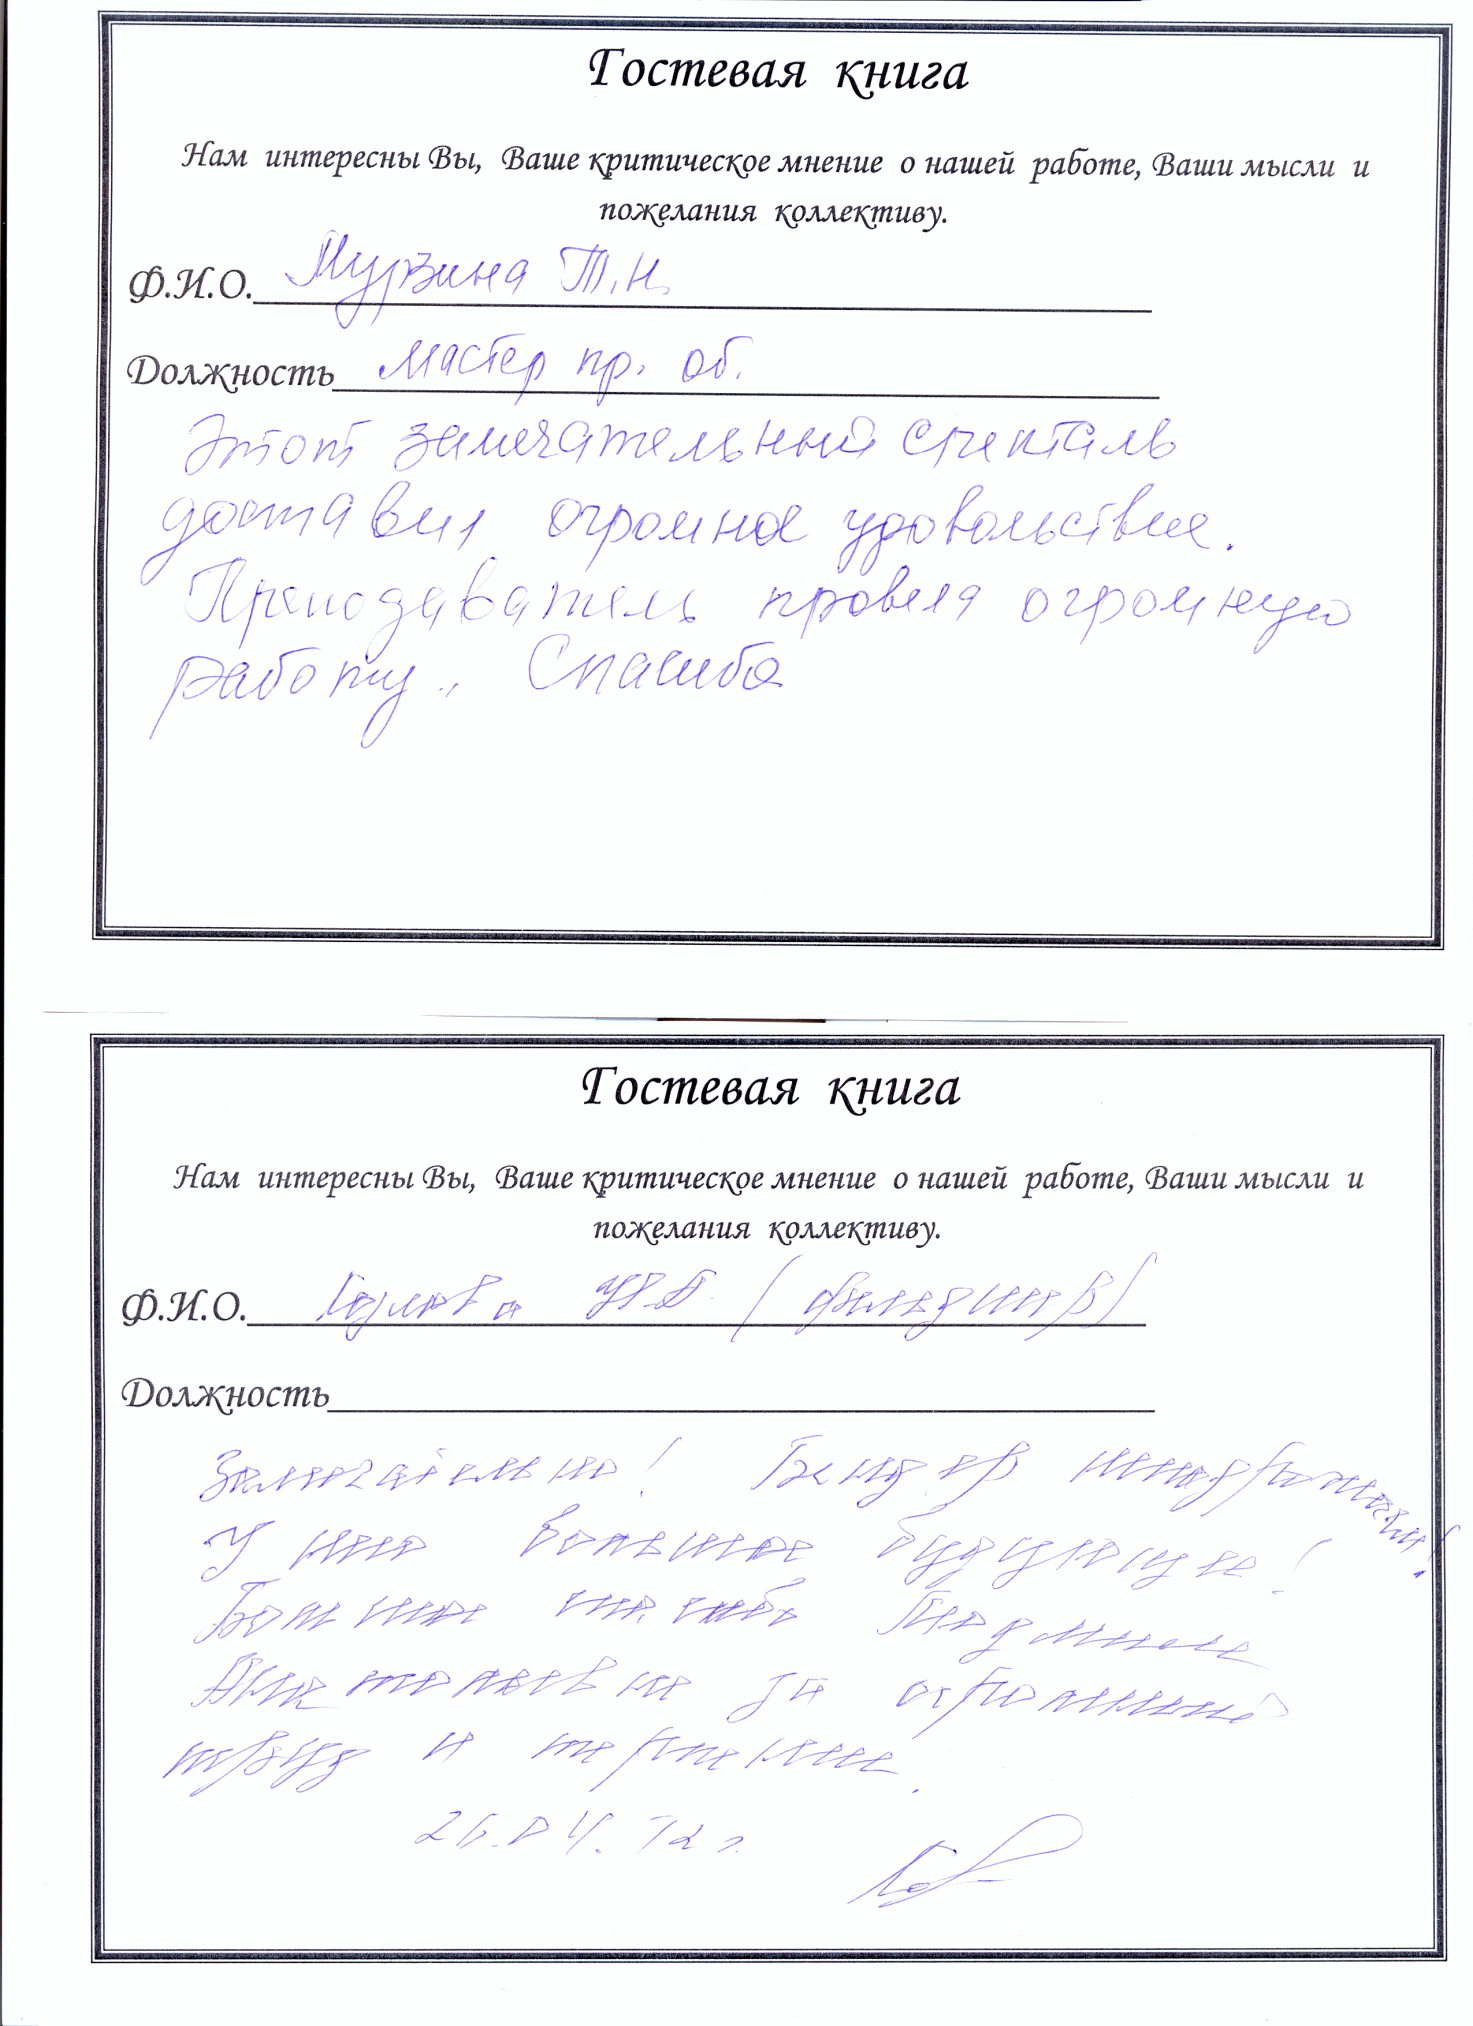 Гостевая книга
Нам интересны Вы, Ваше критическое мнение о нашей работе, Ваши мысли и
пожелания коллективу.
Ф.И.О. Мурзина Т.Н.
Должность мастер пр. об.
Этот замечательный спектакль
доставил огромное удовольствие.
Преподаватель провела огромную
работу. Спасибо
Гостевая книга
Нам интересны Вы, Ваше критическое мнение о нашей работе, Ваши мысли и
пожелания коллективу.
Ф.И.О.
Должность
Замечательно! Бендер неподражаем!
У него большое будущее!
Большое спасибо Людмиле
Анатольевне за огромный
труд и терпение.